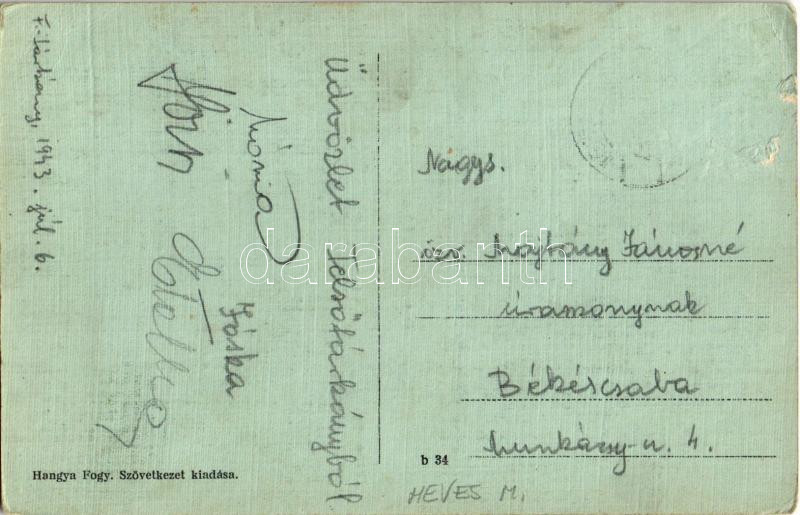 F.-Tárkány, 1943. júl. 6.
Üdvözlet Felsőtárkányból
Mónia
Jóska
Etelka
Nagys.
özv. Mojtány Jánosné
úrasszonynak
Békéscsaba
Munkácsy-u. 4.
Hangya Fogy. Szövetkezet kiadása.
b 34
HEVES M.
darabanth